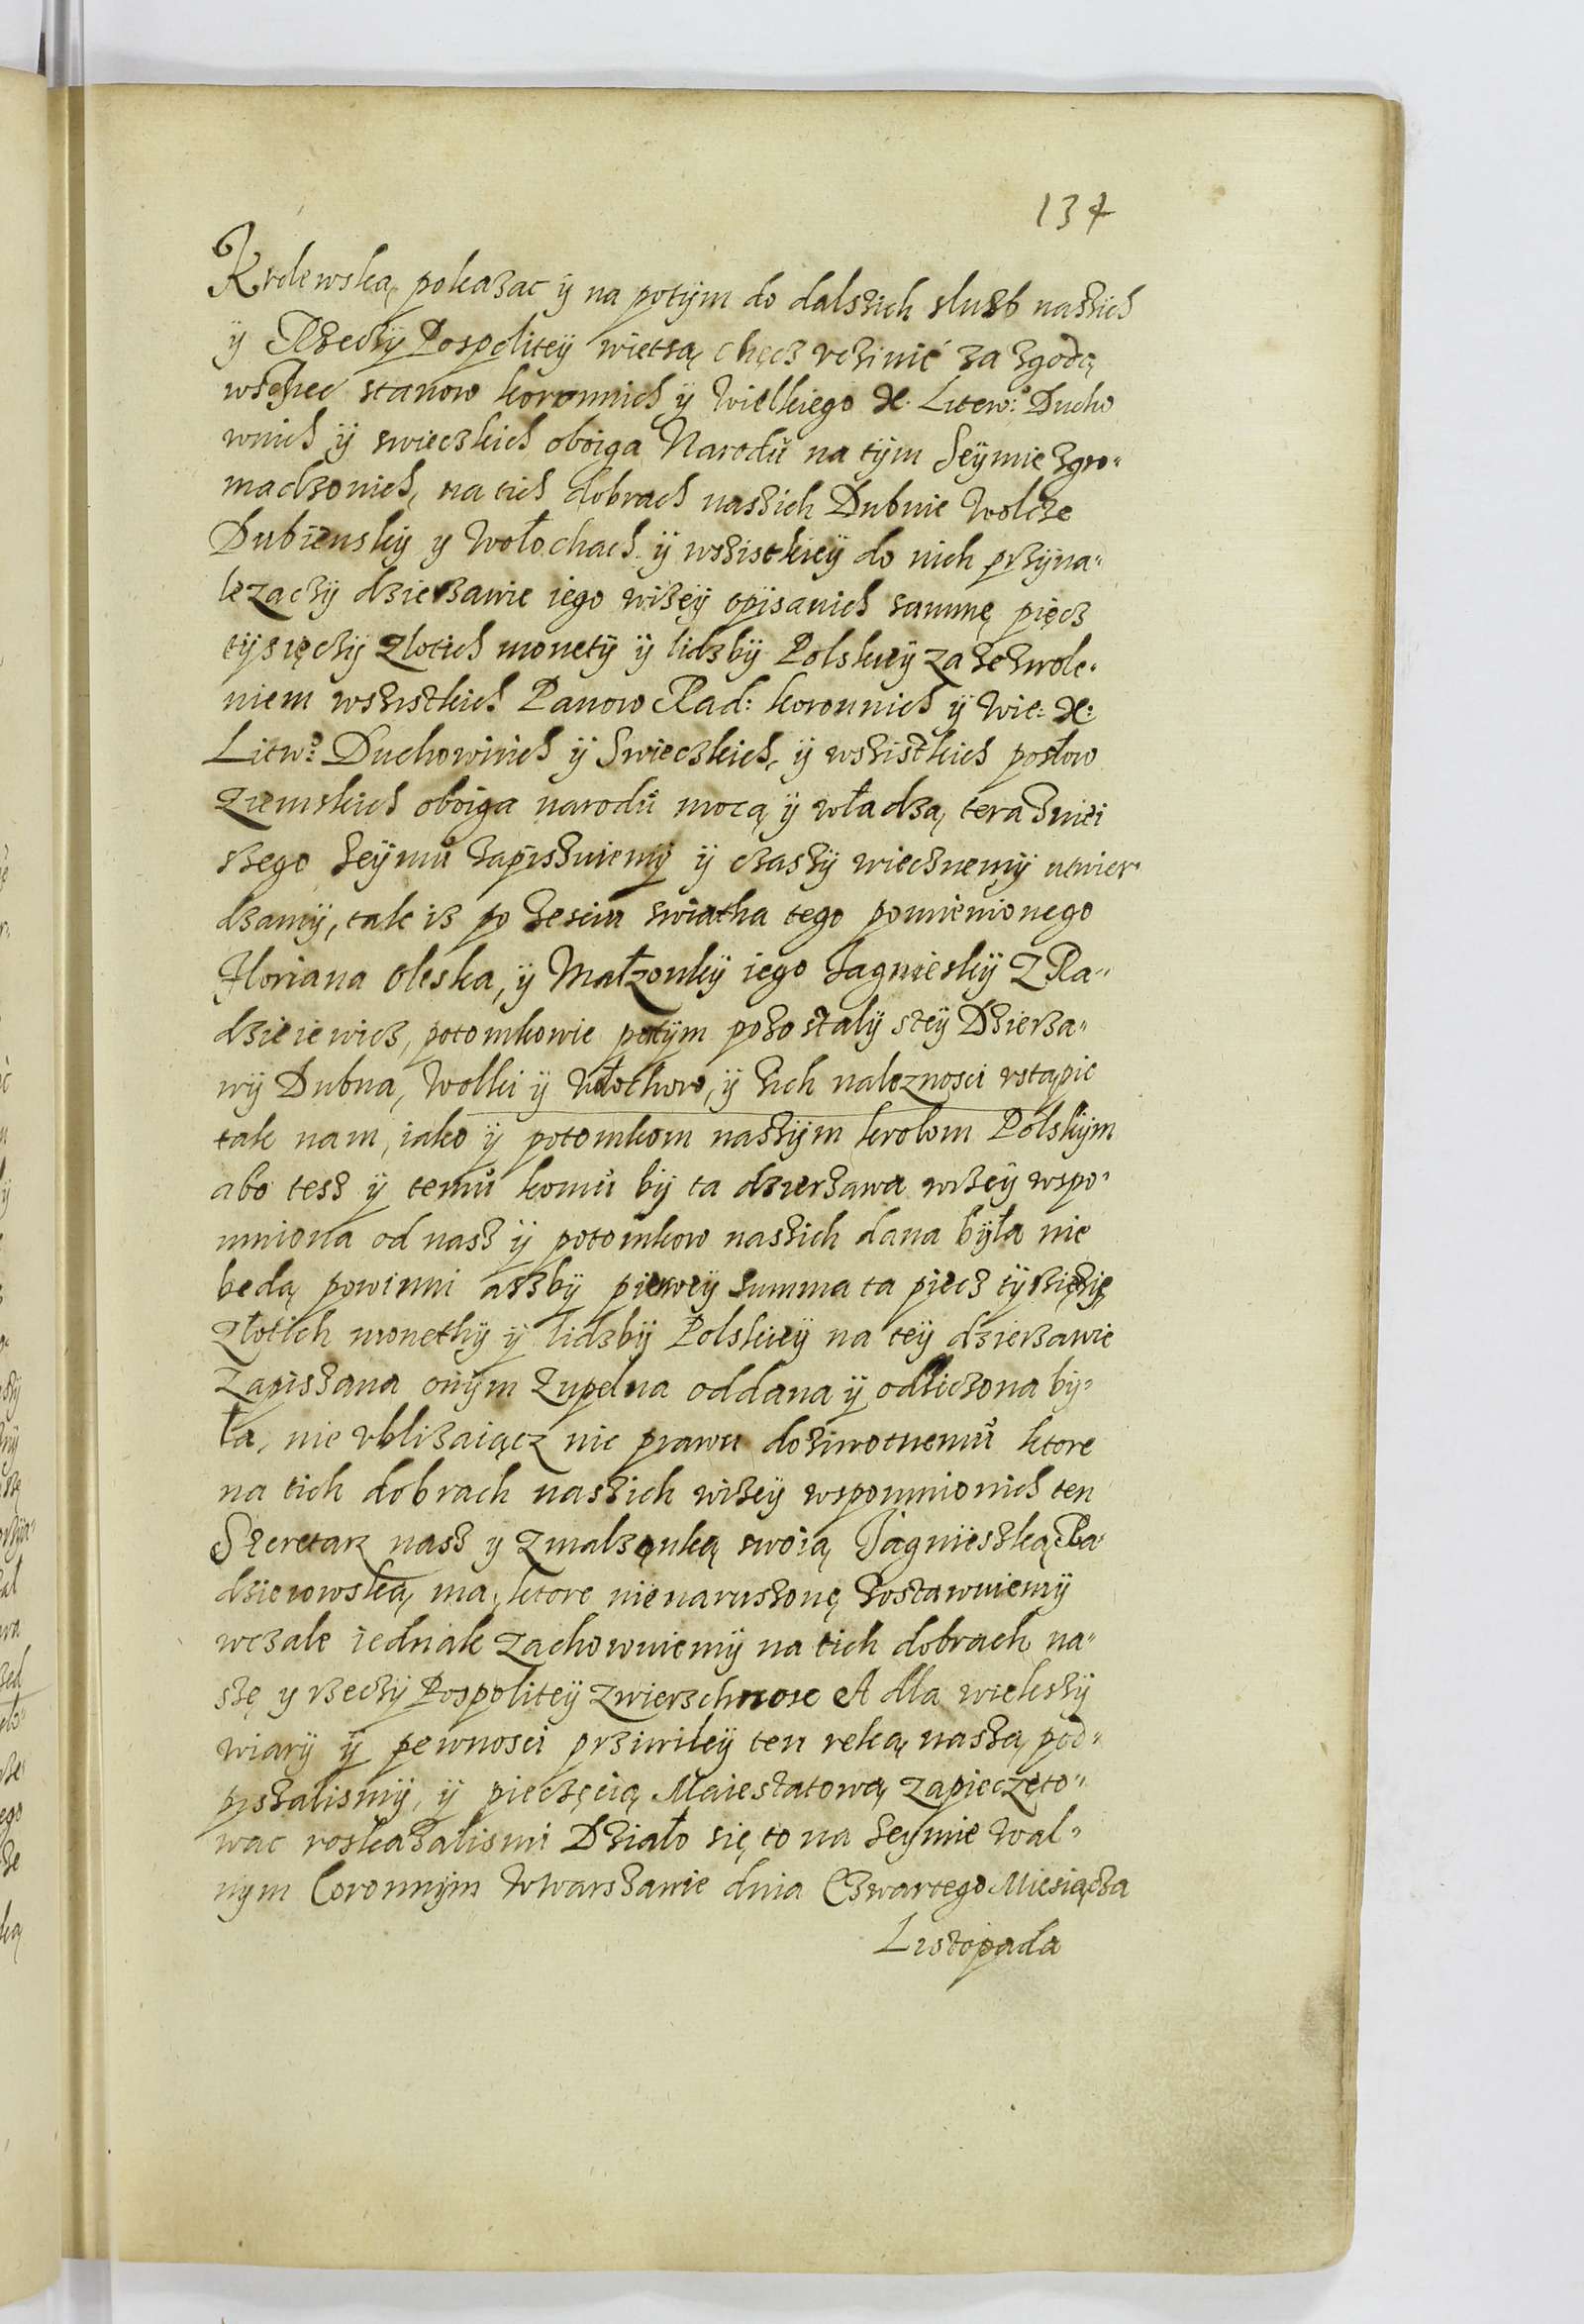 134
Krolewską pokazac ÿ na potÿm do dalszich sluzb naszich
ÿ Rzeczÿ Pospolitÿ wietszą chęcz vczinić za zgodą
wszhec stanow koronnich ÿ Wielkiego X. Litew: Ducho
wnich ÿ swieczkich oboiga Narodů na tÿm Seÿmie zgro-
madzonich, na tich dobrach naszich Dubnie Wolcze
Dubienskÿ y Wołochach ÿ wszistkieÿ do nich przÿna-
lezaczÿ dzierzawie iego wizeÿ opÿsanich summę pięcz
tÿsięczÿ zlotich monetÿ ÿ lidzbÿ Polskieÿ za zezwole-
niem wszistkich Panow Rad: koronnich ÿ Wie: X:
Litwo: Duchownich ÿ Swieczkich, ÿ wszistkich posłow
ziemskich oboiga narodů mocą ÿ władzą terazniei
szego seÿmů zapiszuiemÿ ÿ czaszÿ wiecznemÿ utwier-
dzamÿ, tak iz po zesciu swiatha tego pomienionego
Floriana Oleska, ÿ Małzonkÿ iego Jagnieskÿ Z Ra-
dzieiewicz, potomkowie potÿm pozostalÿ steÿ Dzierza-
wÿ Dubna, Wolki ÿ Włochow, ÿ zich naleznosci vstąpic
tak nam, iako ÿ potomkom naszÿm krolom Polskÿm
abo tesz ÿ temů komů bÿ ta dzierzawa wizeÿ wspo-
mniona od nasz ÿ potomkow naszich dana bÿła nie
bedą powinni aszbÿ pierweÿ summa ta piecz tÿsięczÿ
złotich monethÿ ÿ lidzbÿ Polskieÿ na teÿ dzierzawie
zapiszana onÿm zupelna oddana ÿ odliczona bÿ-
ła, nie vblizaiącz nic prawu doziwotnemů ktore
na tich dobrach naszich wizeÿ wspomnionich ten
Szcretarz nasz y zmalzonką swoią Jagnieszką Ra-
dzieiowską ma, ktore nienaruszonę zostawuiemÿ
wczale iednak zachowuiemÿ na tich dobrach na-
szę y rzeczÿ Pospolitÿ zwierzchnosc A dla wiekszÿ
wiarÿ ÿ pewnosci przwileÿ ten reką naszą pod-
piszalismÿ, ÿ pieczęcią Maiestatową zapieczęto-
wac roskazalismi Działo się to na Seÿmie Wal-
nÿm Coronnÿm WWarszawie dnia Czwartego Miesiącza
Listopada